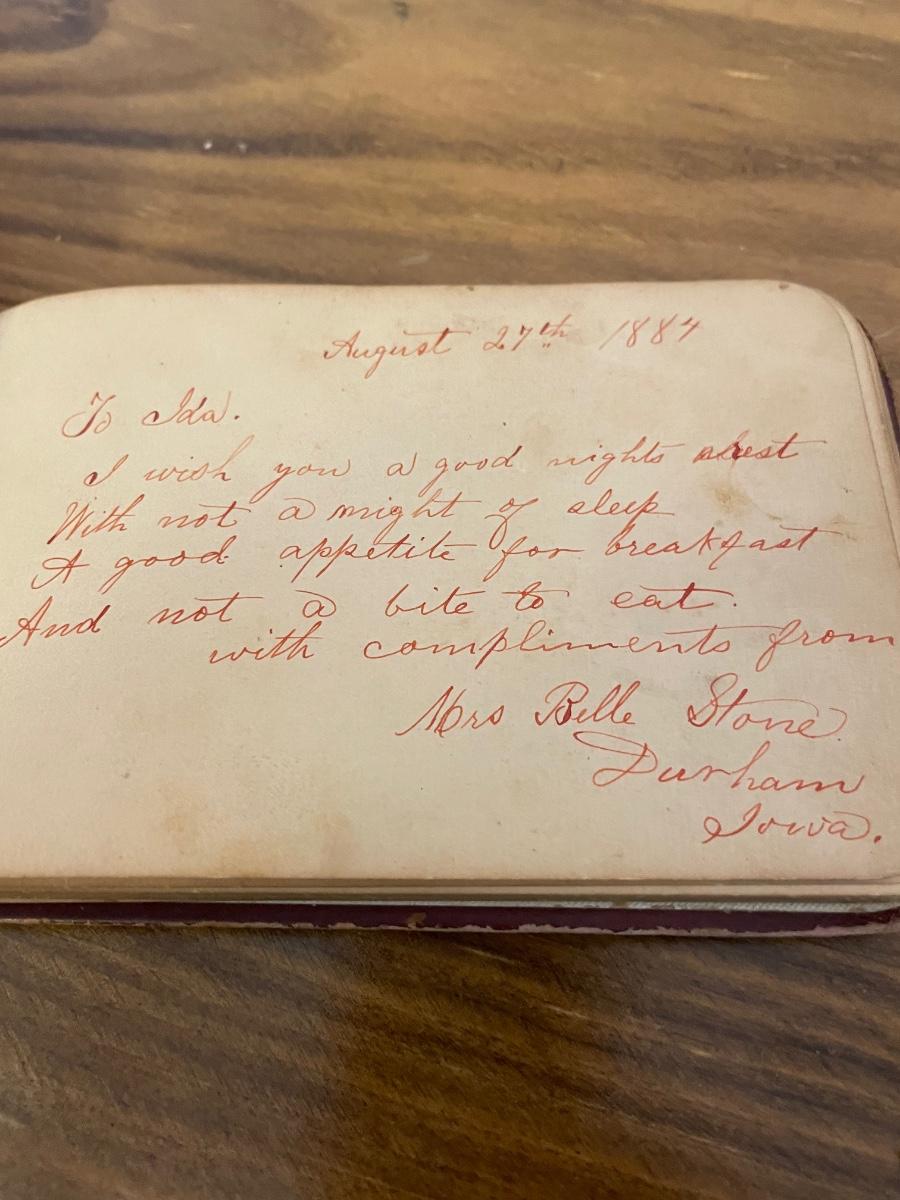 August 27th 1884
To Ida.
I wish you a good nights rest
With not a might of sleep
A good appetite for breakfast
And not a bite to eat.
with compliments from
Mrs Belle Stone.
Durham
Iowa.